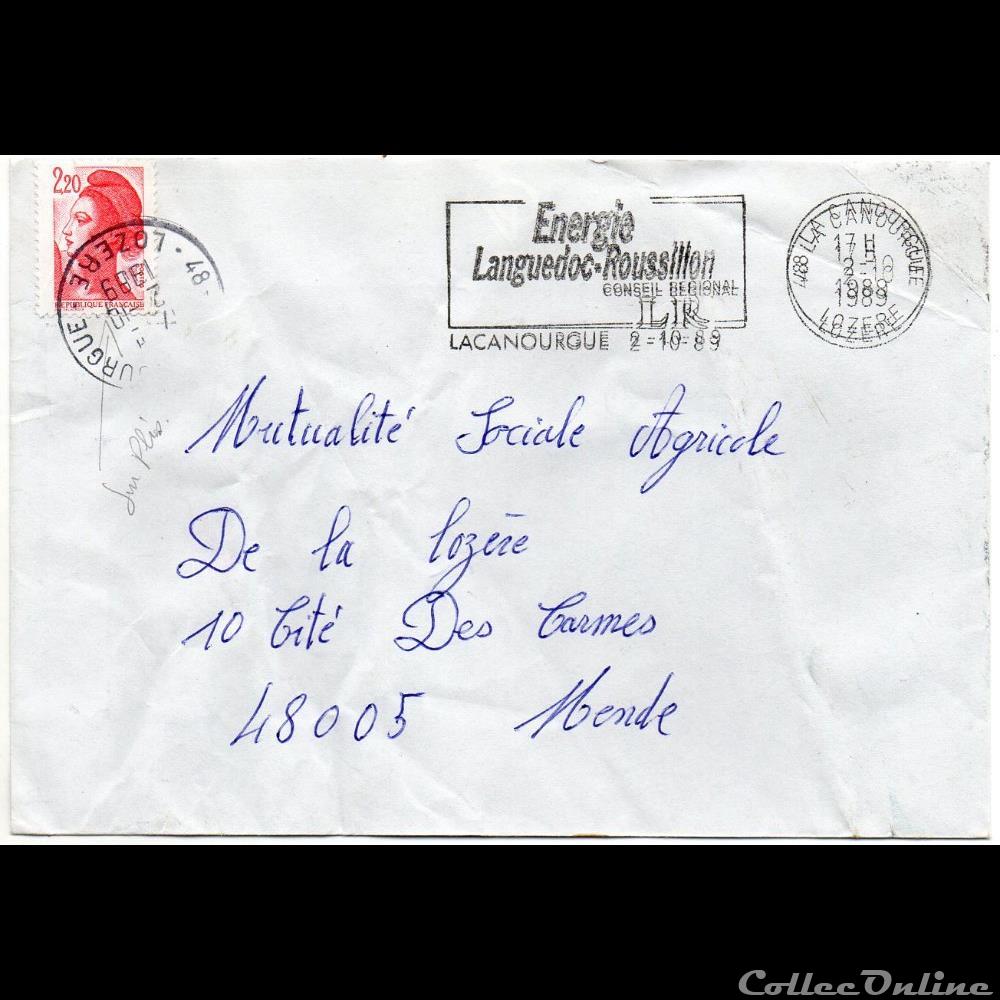 2,20
REPUBLIQUE FRANCAISE
48 · LOZERE
1989
URGUE
Energie
Languedoc-Roussillon
CONSEIL REGIONAL
LR
LACANOURGUE 2-10-89
48 LA CANOURGUE
17H
2-10
1989
LOZERE
Mutualité Sociale Agricole
De la lozère
10 Cité Des Carmes
48005 Mende
CollecOnline